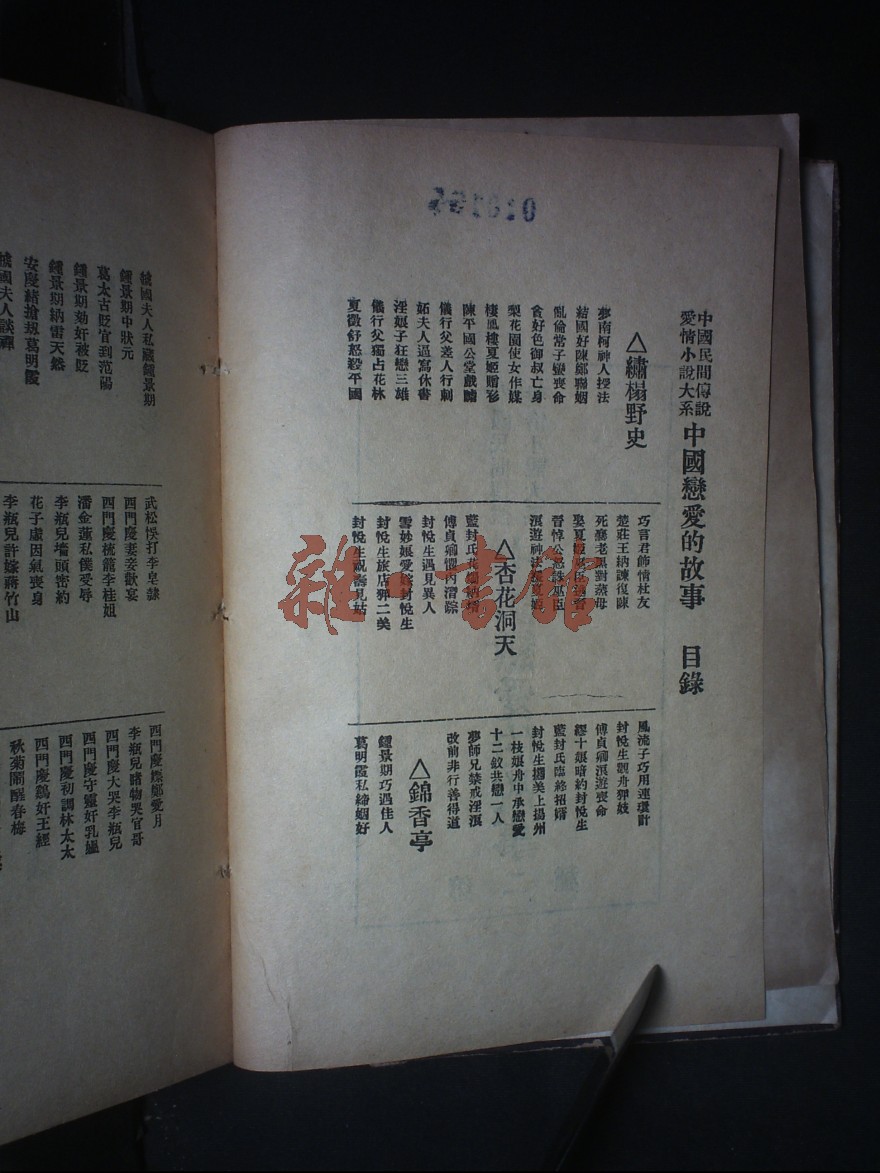 中國民間傳說
愛情小說大系
中國戀愛的故事 目錄
△繡榻野史
夢南柯神人授法
結國好陳鄭聯姻
亂倫常子蠻喪命
貪好色御叔亡身
梨花園使女作媒
棲鳳樓夏姬贈衫
陳平國公堂戲謔
儀行父差人行刺
妬夫人逼寫休書
淫娘子狂戀三雄
儀行父獨占花林
夏徵舒怒殺平國
巧言君飾情杜友
楚莊王納諫復陳
死襄老黑對蒸母
△杏花洞天
傅貞卿懼內潛踪
封悅生遇見異人
雪妙娘愛嫁封悅生
封悅生旅店狎二美
封悅生祝壽見姑
風流子巧用連環計
封悅生觀舟狎妓
傅貞卿淫遊喪命
繆十娘暗約封悅生
藍封氏臨終招婿
封悅生攜美上揚州
一枝娘舟中承戀愛
十二釵共戀一人
夢師兄禁戒淫浪
改前非行善得道
△錦香亭
鍾景期巧遇佳人
葛明霞私締姻好
虢國夫人私藏鍾景期
鍾景期中狀元
葛太古貶官到范陽
鍾景期劾奸被貶
鍾景期納雷天然
安慶緒搶刼葛明霞
虢國夫人談禪
武松悞打李皂隸
西門慶妻妾歡宴
西門慶梳籠李桂姐
潘金蓮私僕受辱
李瓶兒墻頭密約
花子虛因氣喪身
李瓶兒許嫁蔣竹山
西門慶燦鄭愛月
李瓶兒睹物哭官哥
西門慶大哭李瓶兒
西門慶守靈奸乳媼
西門慶初調林太太
西門慶鷄奸王經
秋菊鬧醒春梅
雜書館